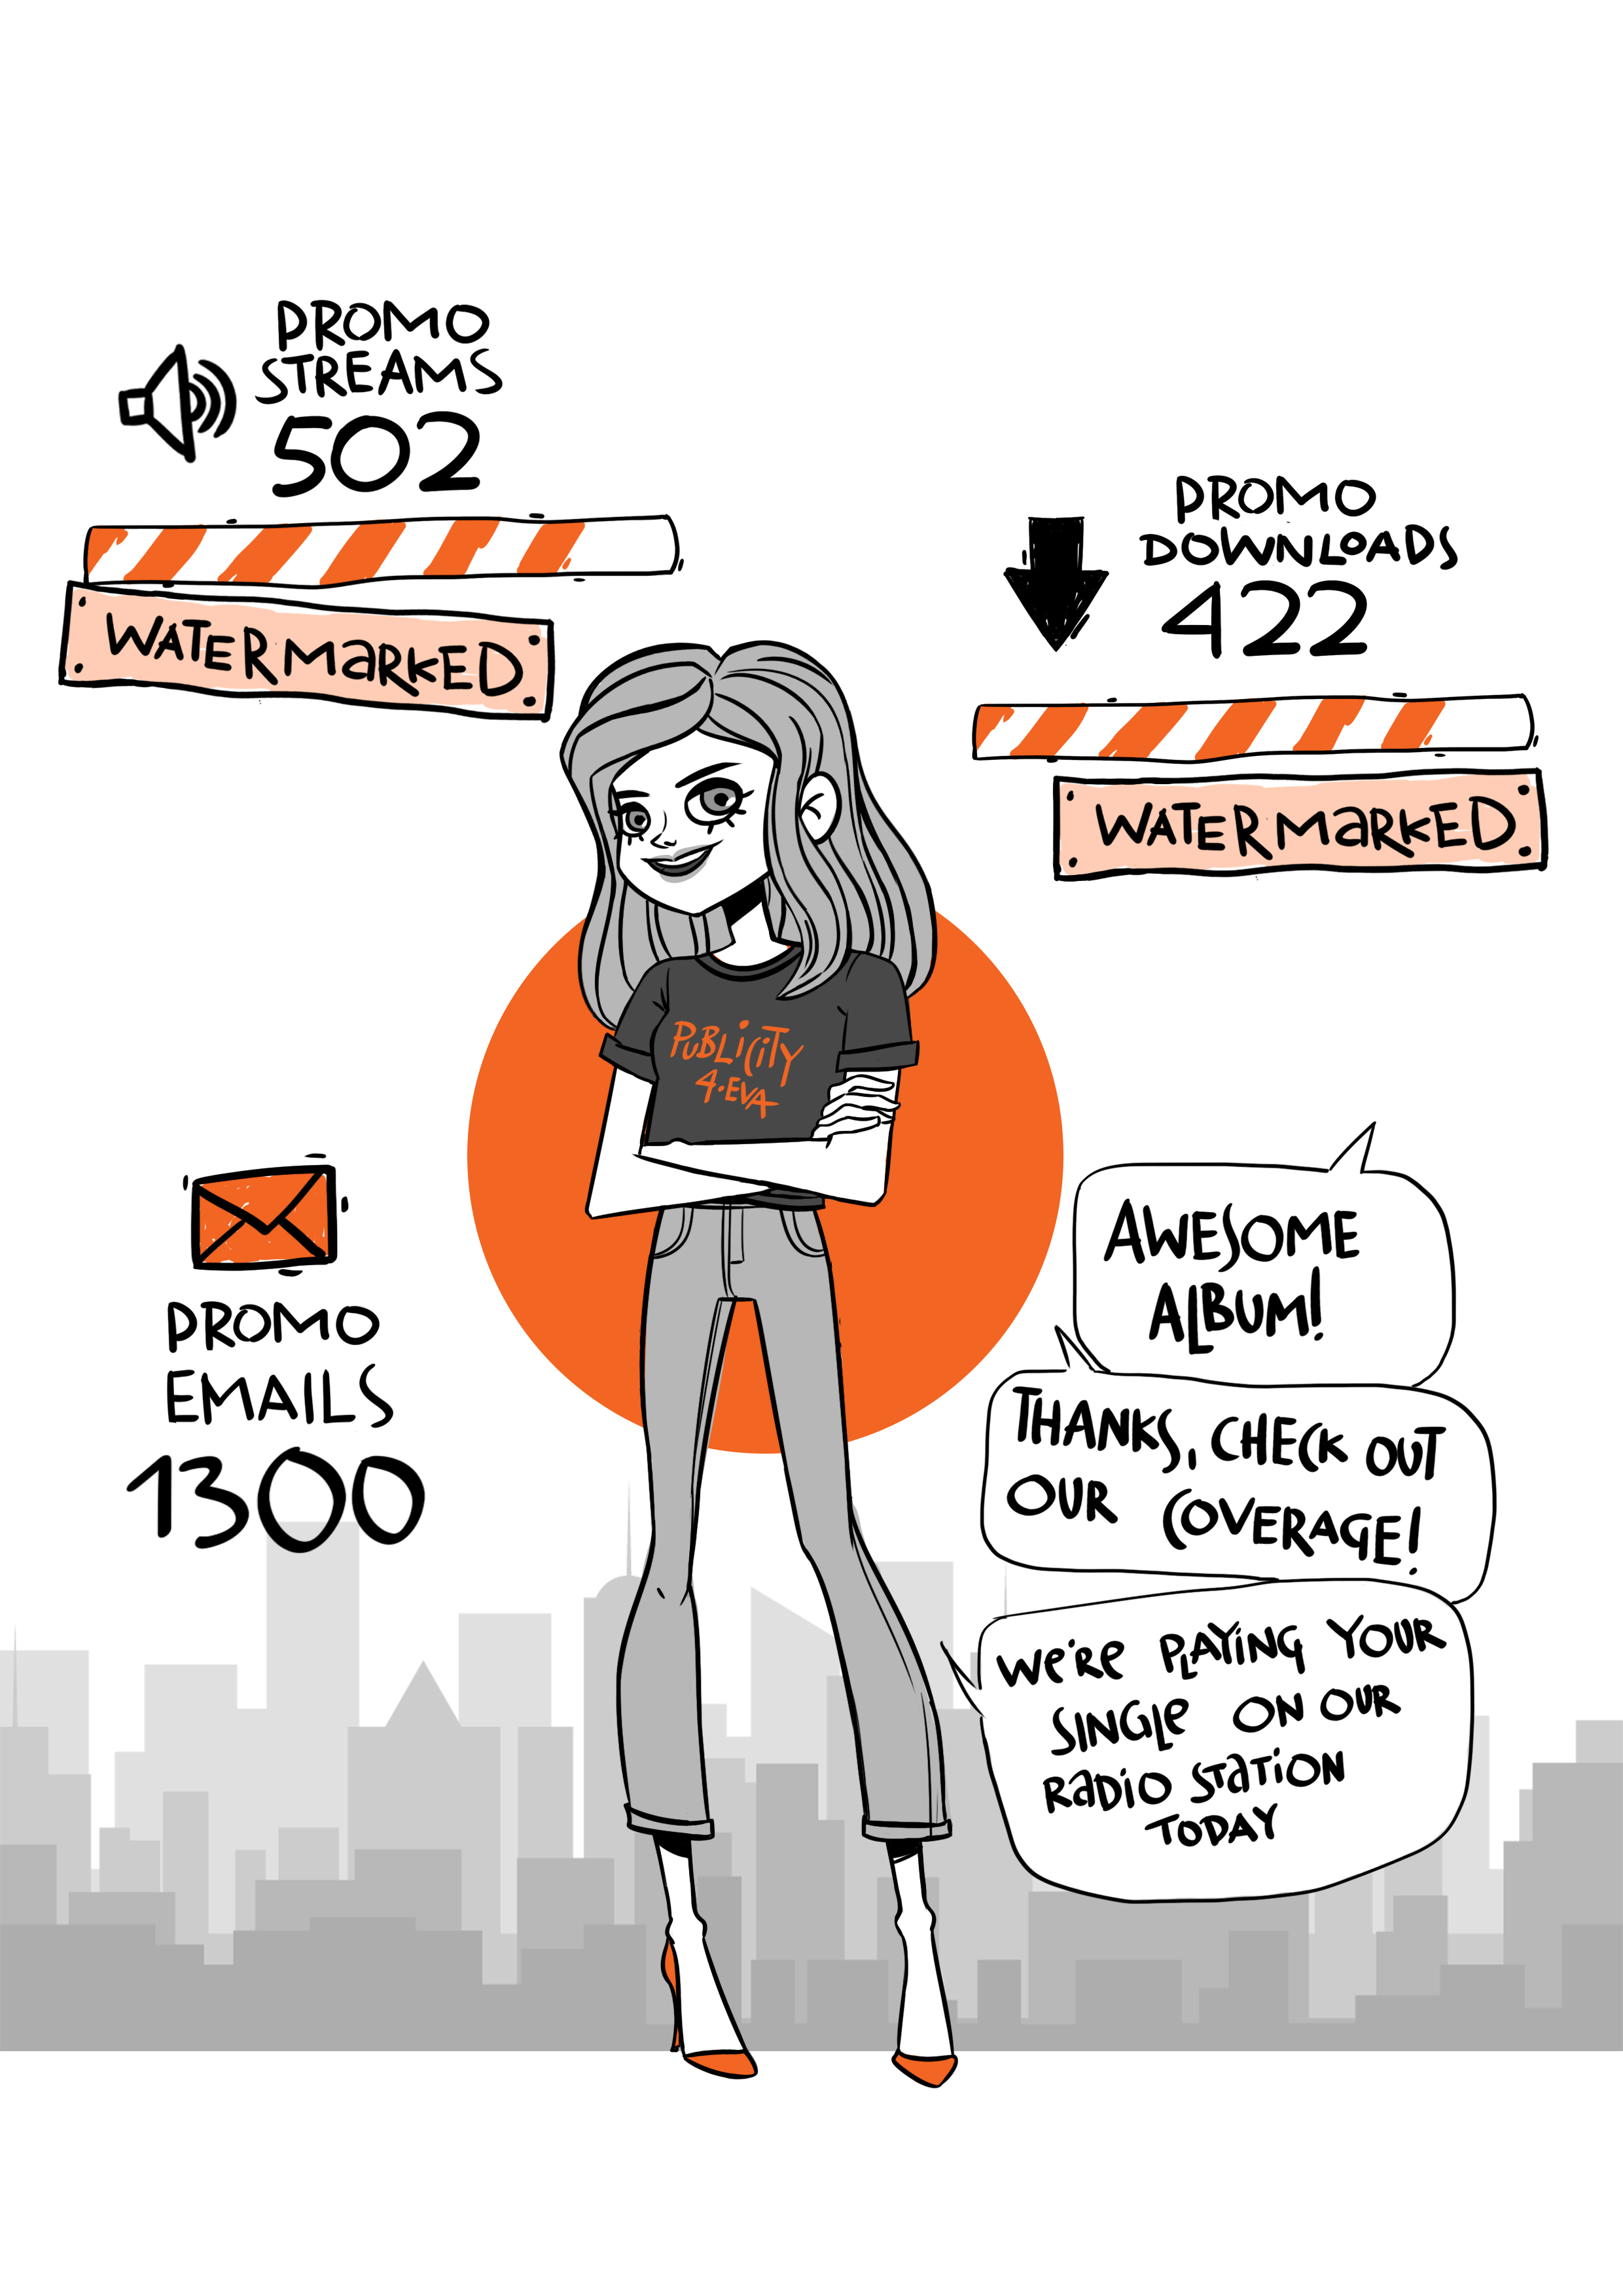 PROMO
STREAMS
502
WATERMARKED
PROMO
DOWNLOADS
422
WATERMARKED
PUBLICITY
4·EVA
PROMO
EMAILS
1300
AWESOME
ALBUM!
THANKS, CHECK OUT
OUR COVERAGE!
WE'RE PLAYING YOUR
SINGLE ON OUR
RADIO STATION
TODAY